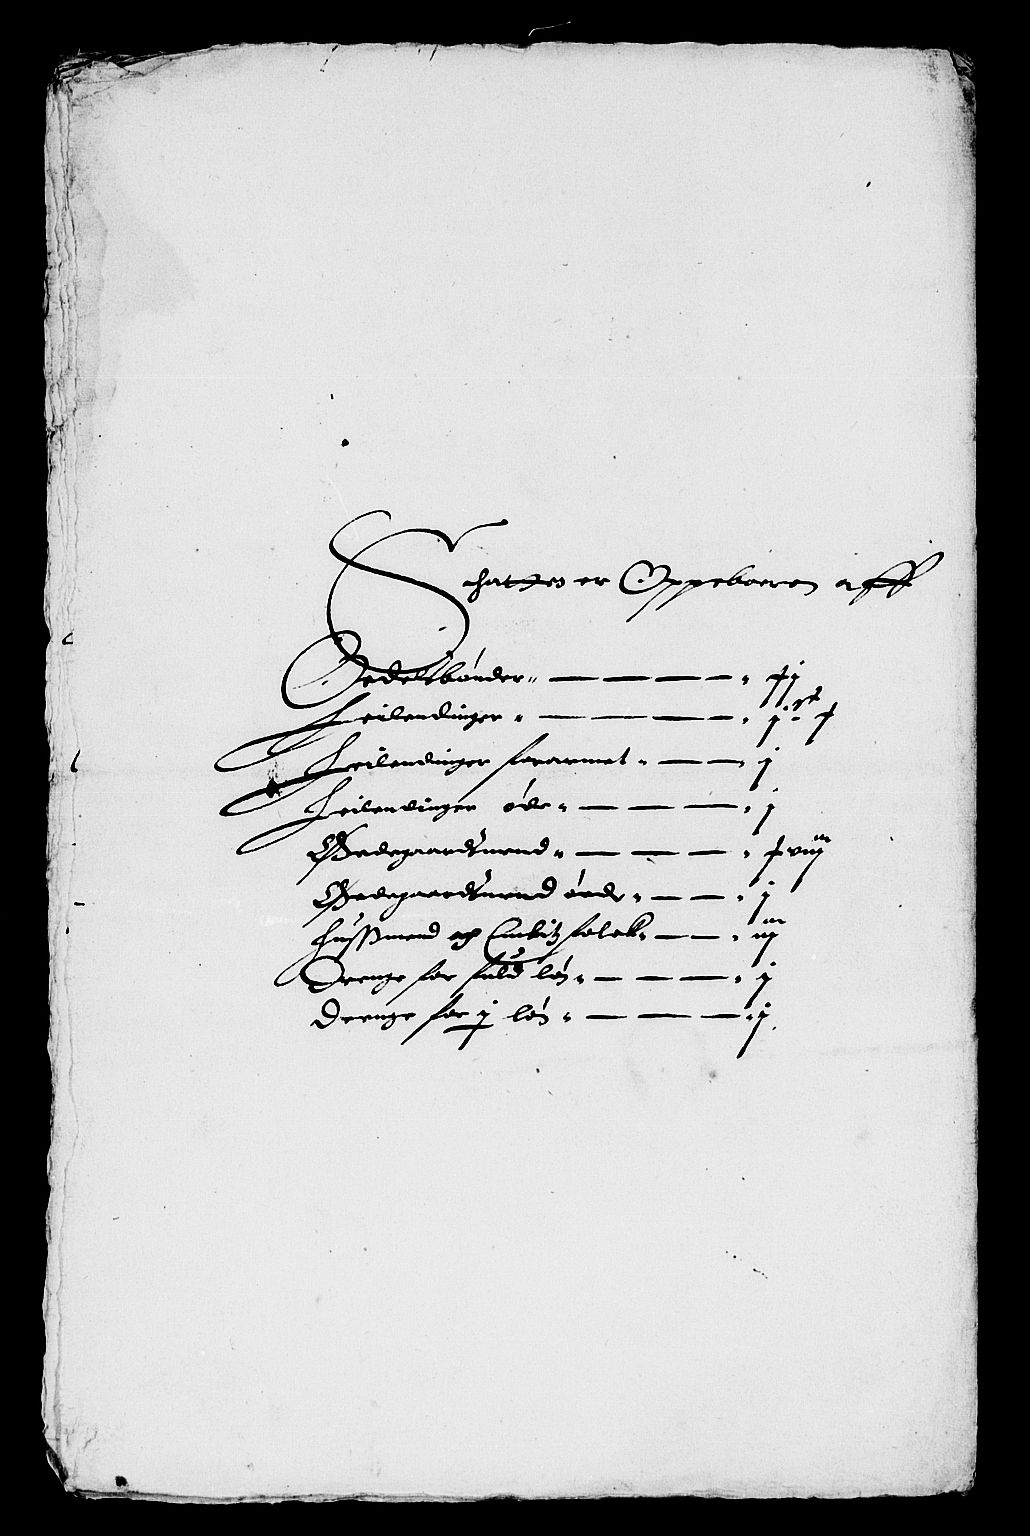 Schatten er Oppeboeren aff
Jordeldbønder
Leilendinger
Leilendinger forarmet j
Leilendinger øde j
Ødegaardsmend
Ødegaardsmend øede j
Hussmend och Embitzfolck iij
Drenge for fuld løn j
Drenge for ½ løn j